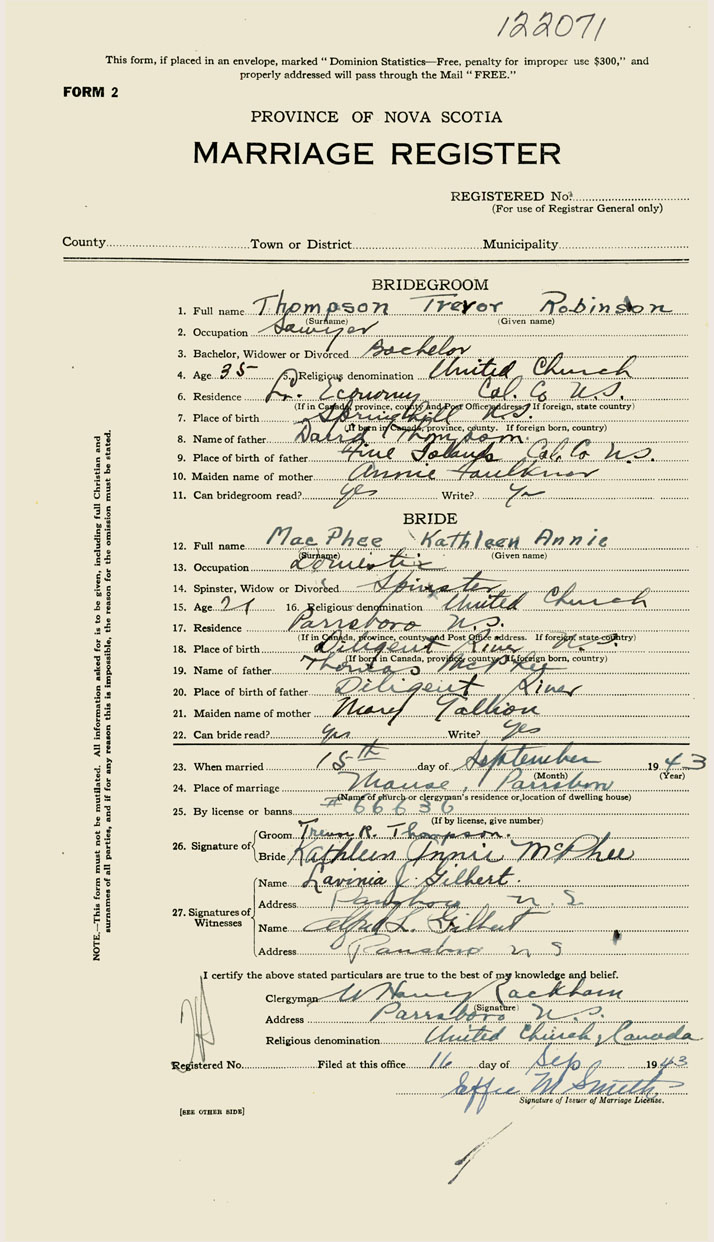 122071
This form, if placed in an envelope, marked "Dominion Statistics—Free, penalty for improper use $300," and
properly addressed will pass through the Mail "FREE."
FORM 2
PROVINCE OF NOVA SCOTIA
MARRIAGE REGISTER
REGISTERED No.
(For use of Registrar General only)
County Town or District Municipality
BRIDEGROOM
1. Full name Thompson Trevor Robinson
(Surname) (Given name)
2. Occupation Sawyer
3. Bachelor, Widower or Divorced Bachelor
4. Age 35 5. Religious denomination United Church
6. Residence Lr. Economy Col. Co N.S.
(If in Canada, province, county and Post Office address. If foreign, state country)
7. Place of birth Springhill N.S.
(If born in Canada, province, county. If foreign born, country)
8. Name of father David Thompson
9. Place of birth of father Five Islands Col. Co N.S.
10. Maiden name of mother Annie Faulkner
11. Can bridegroom read? Yes Write? Yes
BRIDE
12. Full name MacPhee Kathleen Annie
(Surname) (Given name)
13. Occupation Domestic
14. Spinster, Widow or Divorced Spinster
15. Age 21 16. Religious denomination United Church
17. Residence Parrsboro N.S.
(If in Canada, province, county and Post Office address. If foreign state country)
18. Place of birth Diligent River N.S.
(If born in Canada, province, county. If foreign born, country)
19. Name of father Thomas McPhee
20. Place of birth of father Diligent River
21. Maiden name of mother Mary
22. Can bride read? yes Write? yes
23. When married 15th day of September 1943
(Month) (Year)
24. Place of marriage Manse, Parrsboro
(Name of church or clergyman's residence or location of dwelling house)
25. By license or banns # 66636
(If by license, give number)
26. Signature of
Groom Trevor R. Thompson.
Bride Kathleen Annie McPhee
27. Signatures of Witnesses
Name Lavinia J. Gilbert.
Address Parrsboro N.S.
Name Alfred L. Gilbert
Address Parrsboro N S
I certify the above stated particulars are true to the best of my knowledge and belief.
Clergyman W Harvey Rackham
(Signature)
Address Parrsboro N.S.
Religious denomination United Church, Canada
Registered No. Filed at this office 16 day of Sep 1943
Effie M Smith
Signature of Issuer of Marriage License.
[SEE OTHER SIDE]
NOTE.—This form must not be mutilated. All information asked for is to be given, including full Christian and
surnames of all parties, and if for any reason this is impossible, the reason for the omission must be stated.